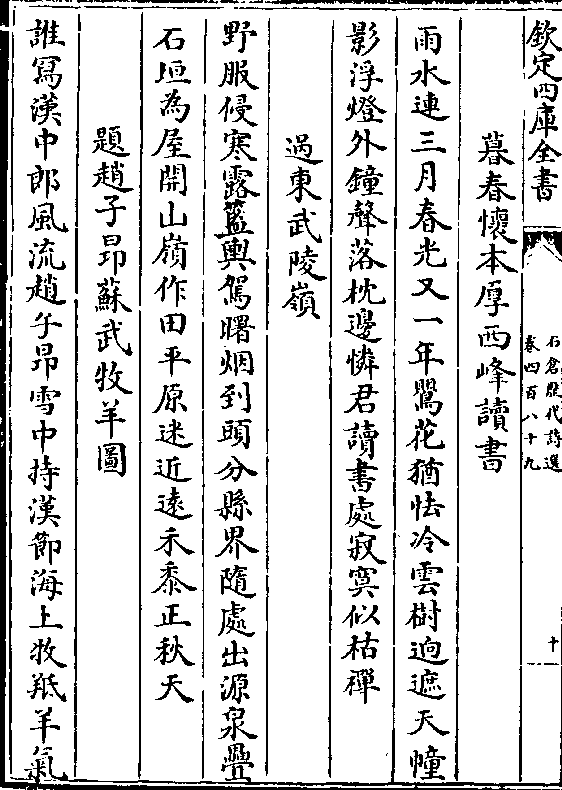 欽定四庫全書
石倉歴代詩選
卷四百八十九
十
暮春懷本厚西峰讀書
雨水連三月春光又一年鶯花猶怯冷雲樹逈遮天幢
影浮燈外鐘聲落枕邊憐君讀書處寂寞似枯禪
過東武陵嶺
野服侵寒露籃輿駕曙烟到頭分縣界隨處出源泉疊
石垣為屋開山嶺作田平原迷近遠禾黍正秋天
題趙子昂蘇武牧羊圖
誰冩漢中郎風流趙子昂雪中持漢節海上牧羝羊氣